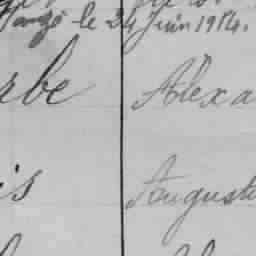 le 24 Juin 1914.
rbe Alexa
is August